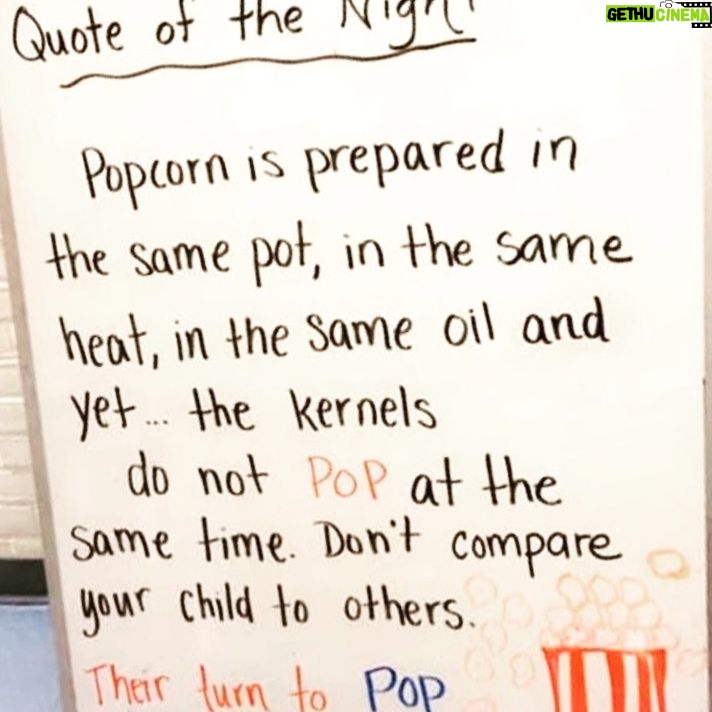 GETHUCINEMA
Quote of the Night
Popcorn is prepared in
the same pot, in the same
heat, in the same oil and
yet... the kernels
do not POP at the
same time. Don't compare
your child to others.
Their turn to POP